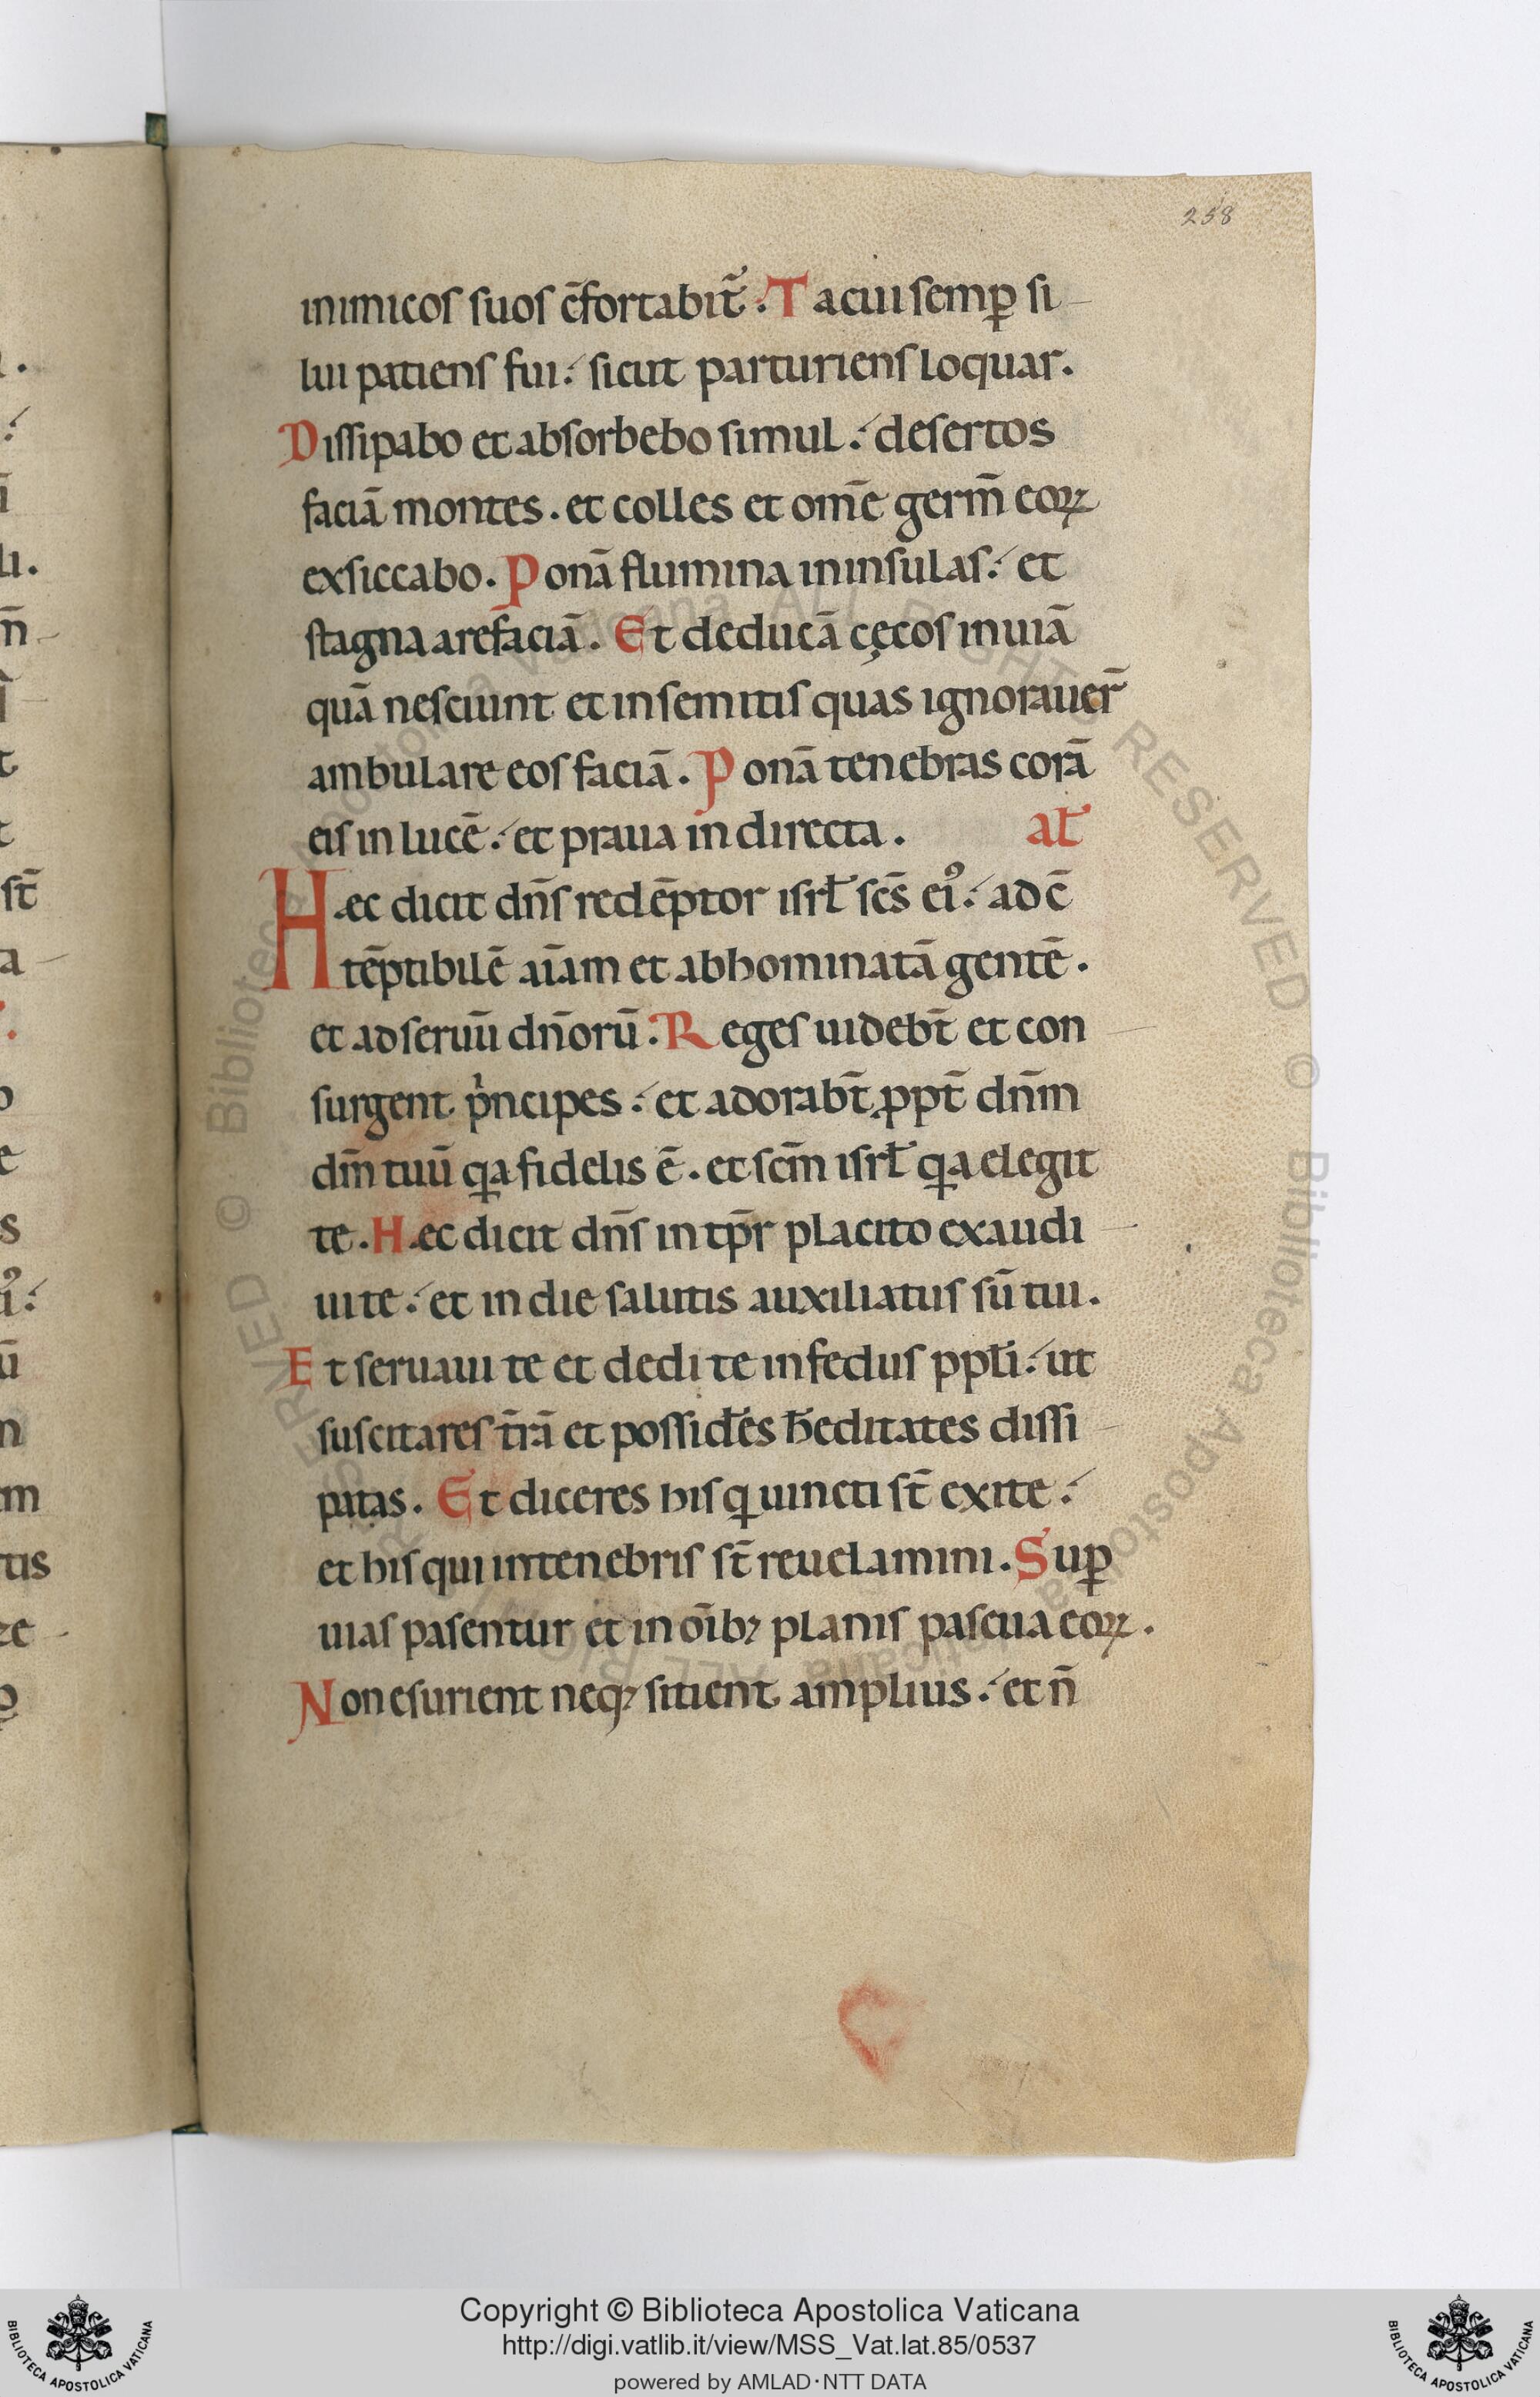 258
inimicos suos c̄fortabit᷑. Tacui semꝑ si
lui patiens fui: sicut parturiens loquar.
Dissipabo et absorbebo simul: desertos
faciā montes. et colles et om̄e germ̄ eoꝝ
exsiccabo. Ponā flumina in insulas: et
stagna arefaciā. Et deducā cęcos in uiā
quā nesciunt et in semitis quas ignorauer̄
ambulare eos faciā. Ponā tenebras corā
eis in lucē: et praua in directa. aƚ
Hec dicit dn̄s redēptor isrƚ sc̄s ei᷒: ad c̄
tēptibilē aīam et abhominatā gentē.
et ad seruū dn̄orū. Reges uidebt̄ et con
surgent pͥncipes: et adorabt̄ ꝓpt̄ dn̄m
dm̄ tuū ꝗa fidelis ē. et sc̄m isrƚ ꝗa elegit
te. Hec dicit dn̄s in tp̄r placito exaudi
ui te: et in die salutis auxiliatus sū tui.
Et seruaui te et dedi te in fedus ppƚi: ut
suscitares t̄rā et possid̄es h̄editates dissi
patas. Et diceres his ꝗ uincti st̄ exite:
et his qui in tenebris st̄ reuelamini. Suꝑ
uias pasentur et in oībꝫ planis pascua eoꝝ.
Non esurient neqꝫ sitient amplius: et n̄
Copyright © Biblioteca Apostolica Vaticana
http://digi.vatlib.it/view/MSS_Vat.lat.85/0537
powered by AMLAD·NTT DATA
BIBLIOTECA APOSTOLICA VATICANA
BIBLIOTECA APOSTOLICA VATICANA